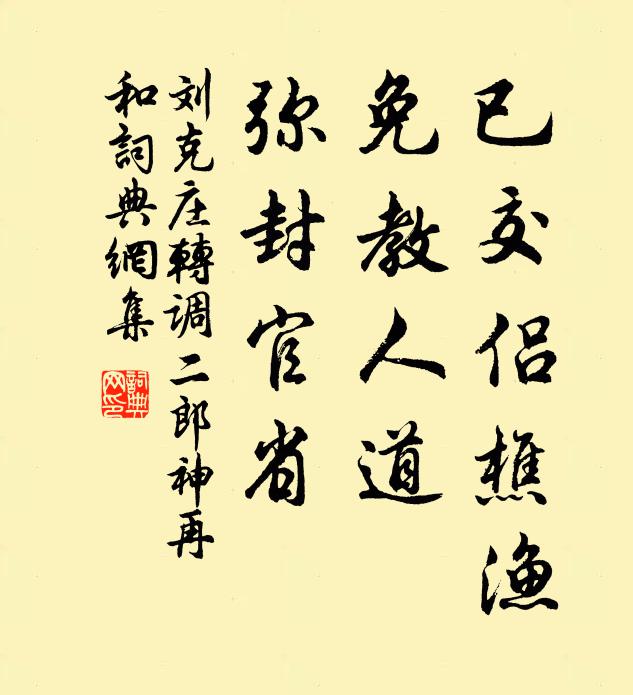 已交侣樵渔
免教人道
弥封官省
刘克庄轉调二郎神再
和詞典網集
詞典
网印